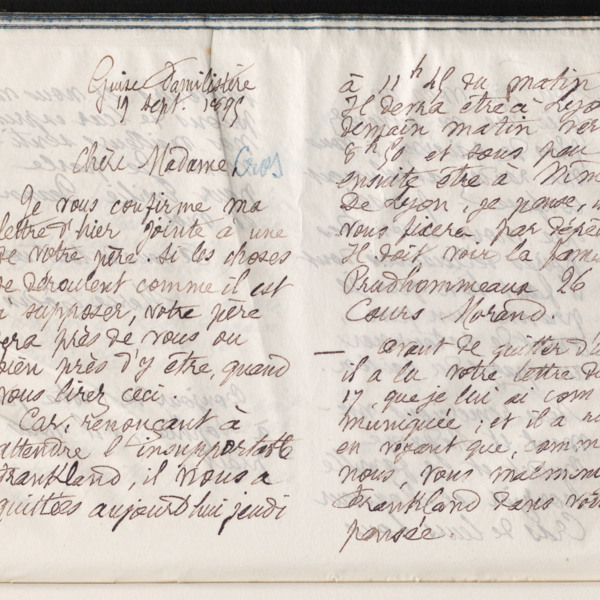 Guise Familistère
19 Sept. 1895
Chère Madame Cros
Je vous confirme ma
lettre d'hier jointe à une
de votre père. Si les choses
se déroulent comme il est
à supposer, votre père
sera près de vous ou
bien près d'y être, quand
vous lirez ceci.
Car, renonçant à
attendre l'insupportable
Frankland, il nous a
quittées aujourd'hui jeudi
à 11 h 45 du matin
Il devra être à Lyon
demain matin ver
8 h 50 et sous peu
ensuite être à
De Lyon, je pense, il
vous fixera par dépê
Il doit voir la fami
Prudhommeaux 26
Cours Morand.
— avant de quitter d'
il a lu votre lettre du
17 que je lui ai com
muniquée; et il a
en voyant que, comm
nous, vous
Frankland dans vo
pensée.